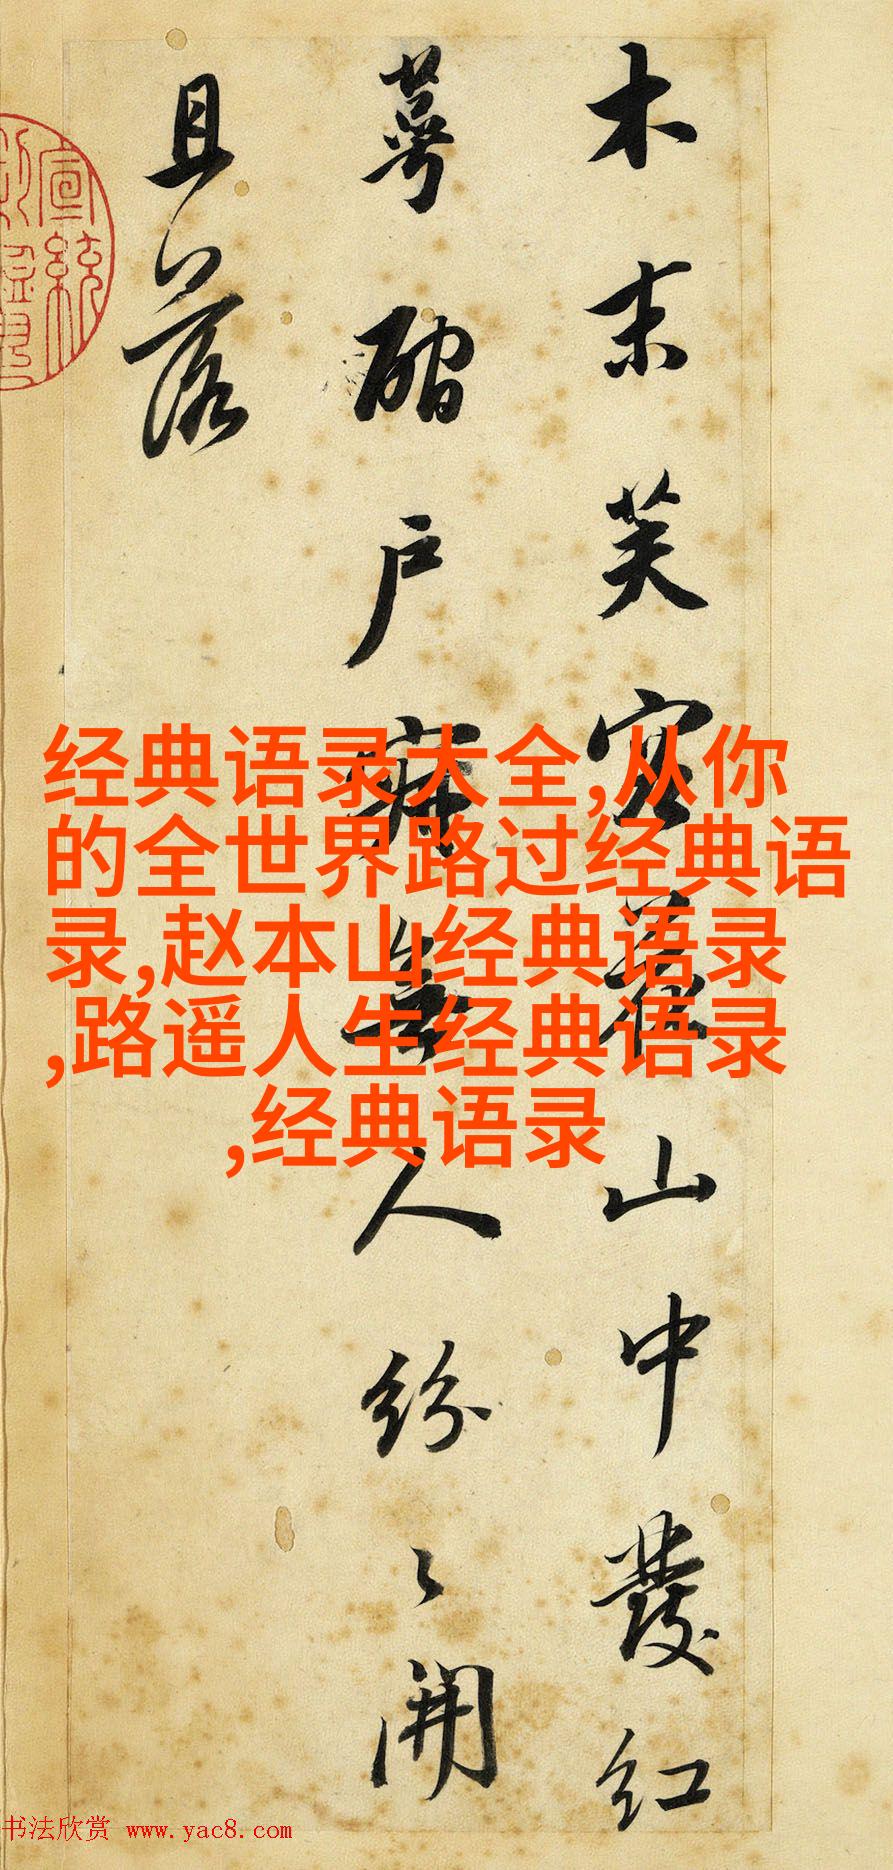 木末芙容花山中發紅
萼磵戶寂無人紛々開
且落
宣統
经典语录大全,从你
的全世界路过经典语
录,赵本山经典语录
,路遥人生经典语录
,经典语录
书法欣赏 www.yac8.com